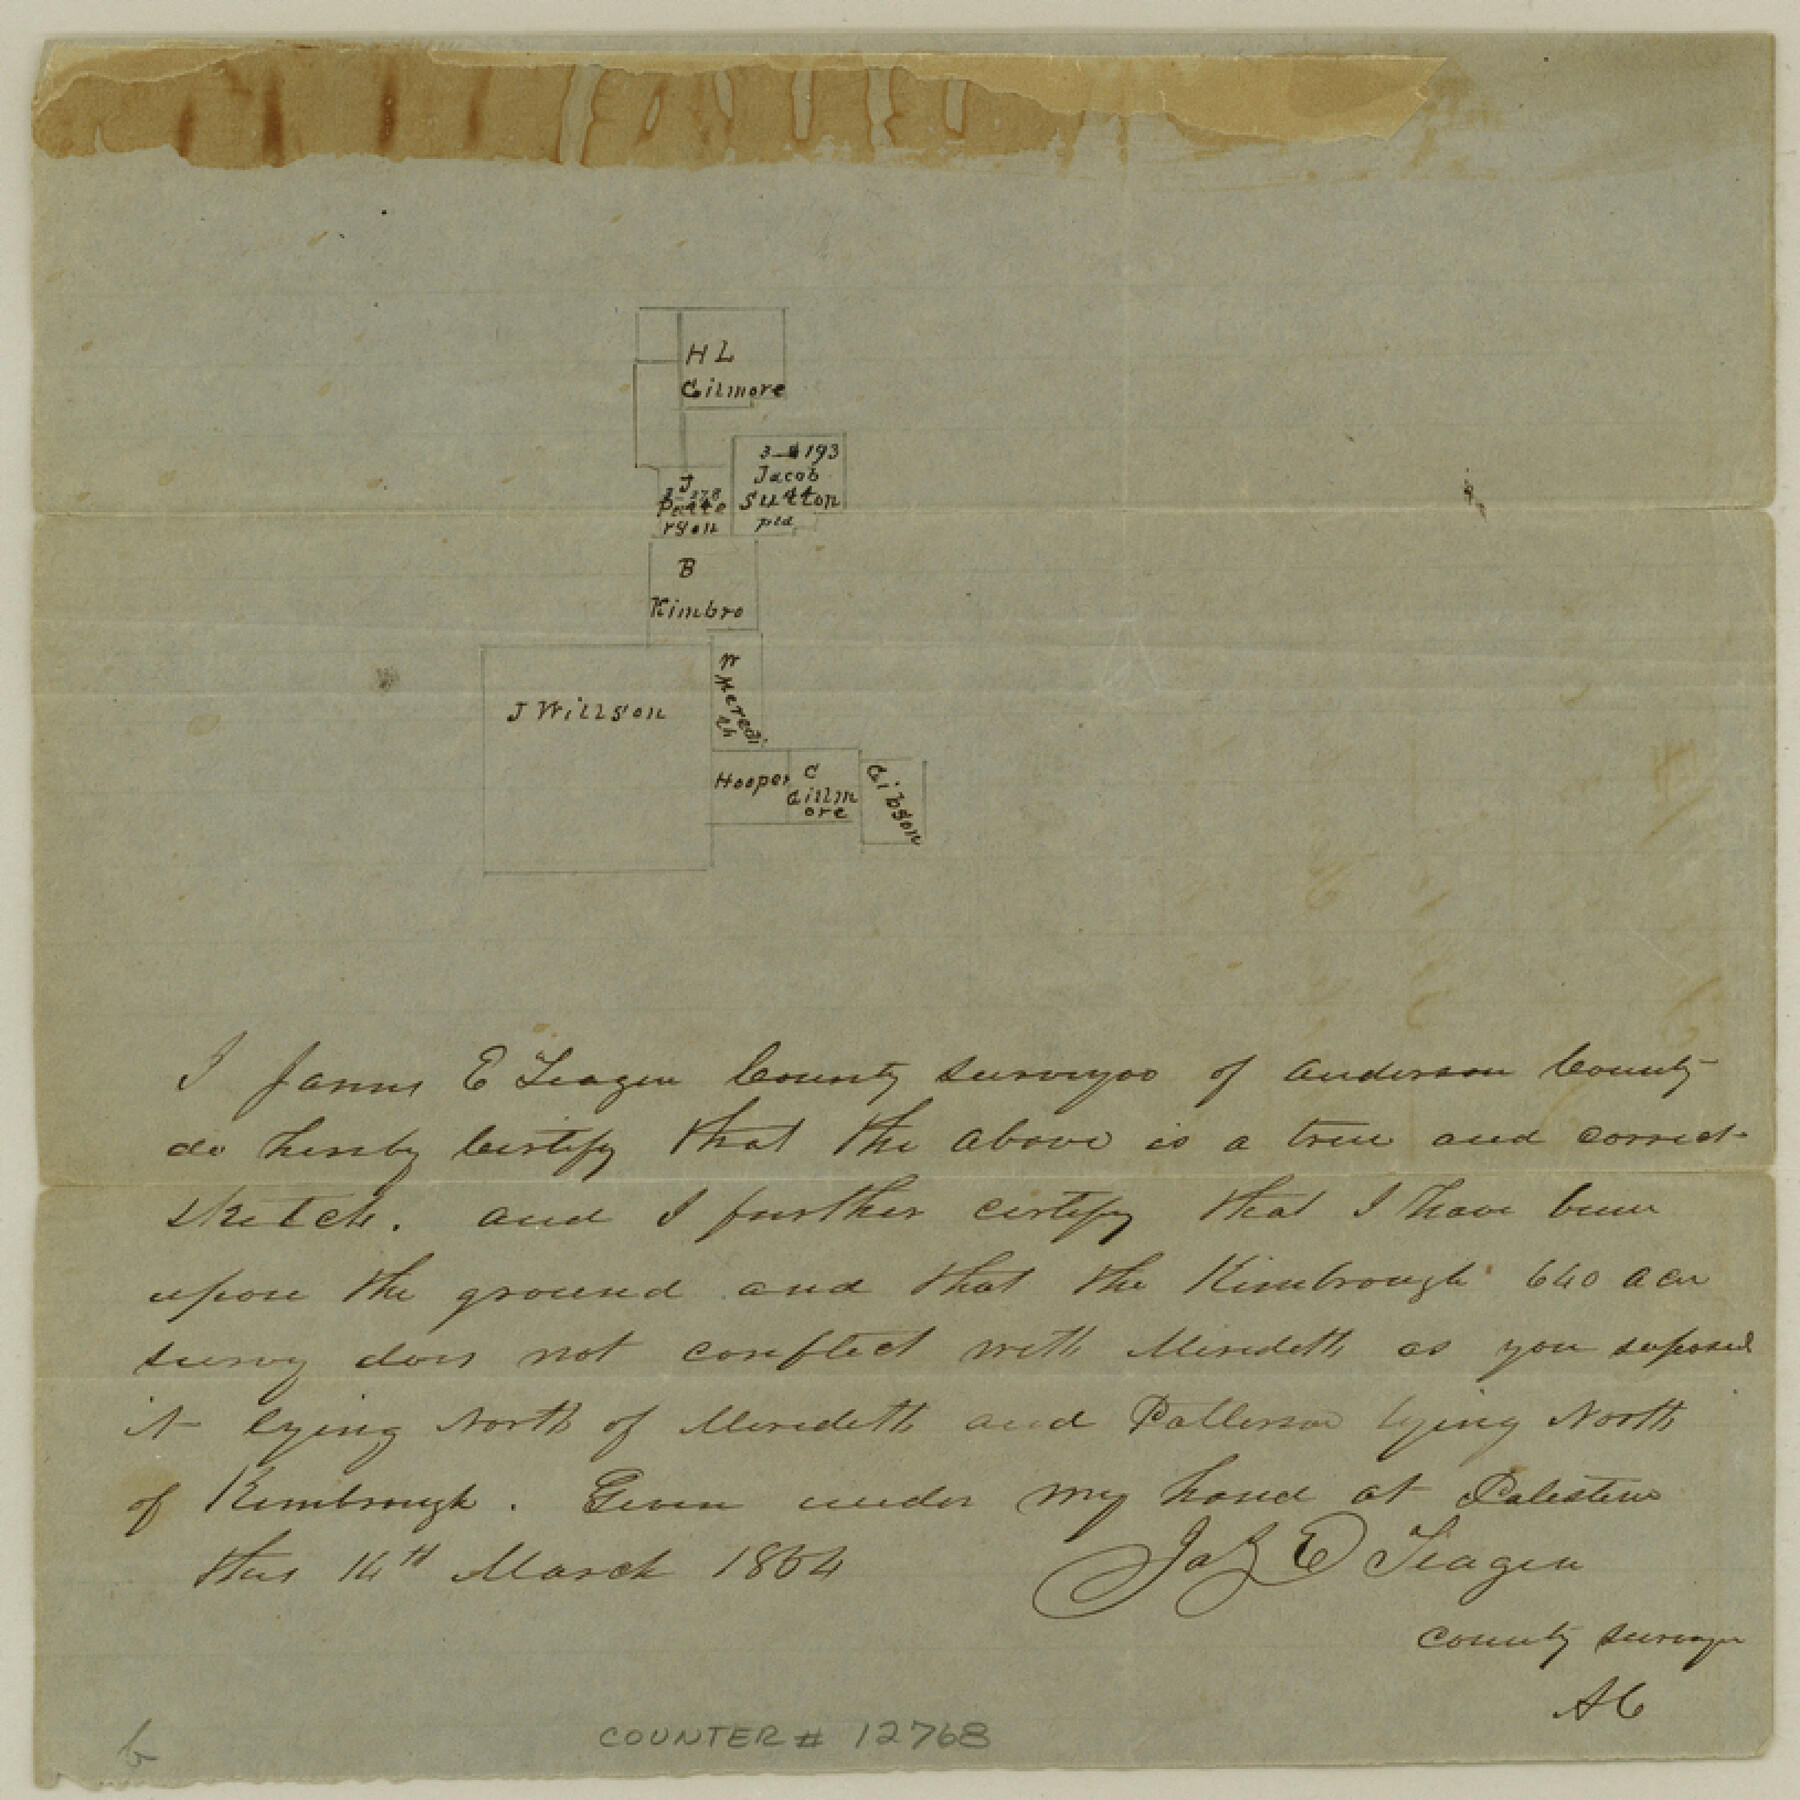 H L
Gilmore
3-193
Jacob
Sutton
ptd
J
3-278
Patte
rson
B
Kimbro
W
Meredi
th
J Willson
Hooper
C
Gillm
ore
Gibson
I James E Teagen County surveyor of Anderson County
do hereby Certify that the above is a true and correct
sketch. and I further certify that I have been
upon the ground and that the Kimbrough 640 acre
survey does not conflect with Meredeth as you suposed
it lying North of Meredeth and Patterson lying North
of Kimbrough. Given under my hand at Palestine
this 14th March 1864
Jas E Teagen
County surveyor
A C
COUNTER # 12768